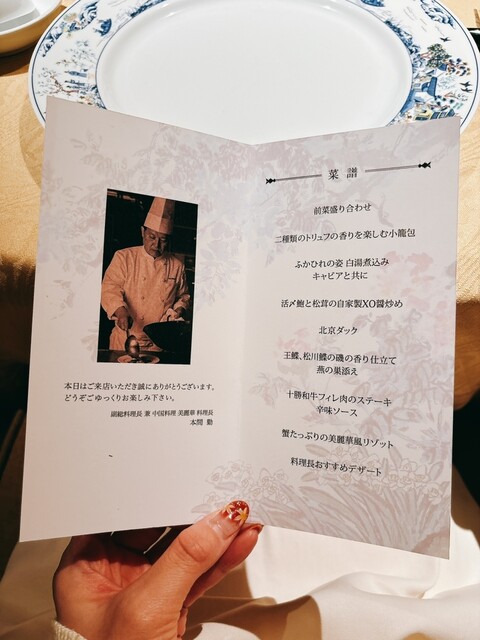 本日はご来店いただき誠にありがとうございます。
どうぞごゆっくりお楽しみ下さい。
副総料理長 兼 中国料理 美麗華 料理長
本間 勤
菜譜
前菜盛り合わせ
二種類のトリュフの香りを楽しむ小籠包
ふかひれの姿 白湯煮込み
キャビアと共に
活〆鮑と松茸の自家製XO醤炒め
北京ダック
王鰈、松川鰈の磯の香り仕立て
燕の巣添え
十勝和牛フィレ肉のステーキ
辛味ソース
蟹たっぷりの美麗華風リゾット
料理長おすすめデザート